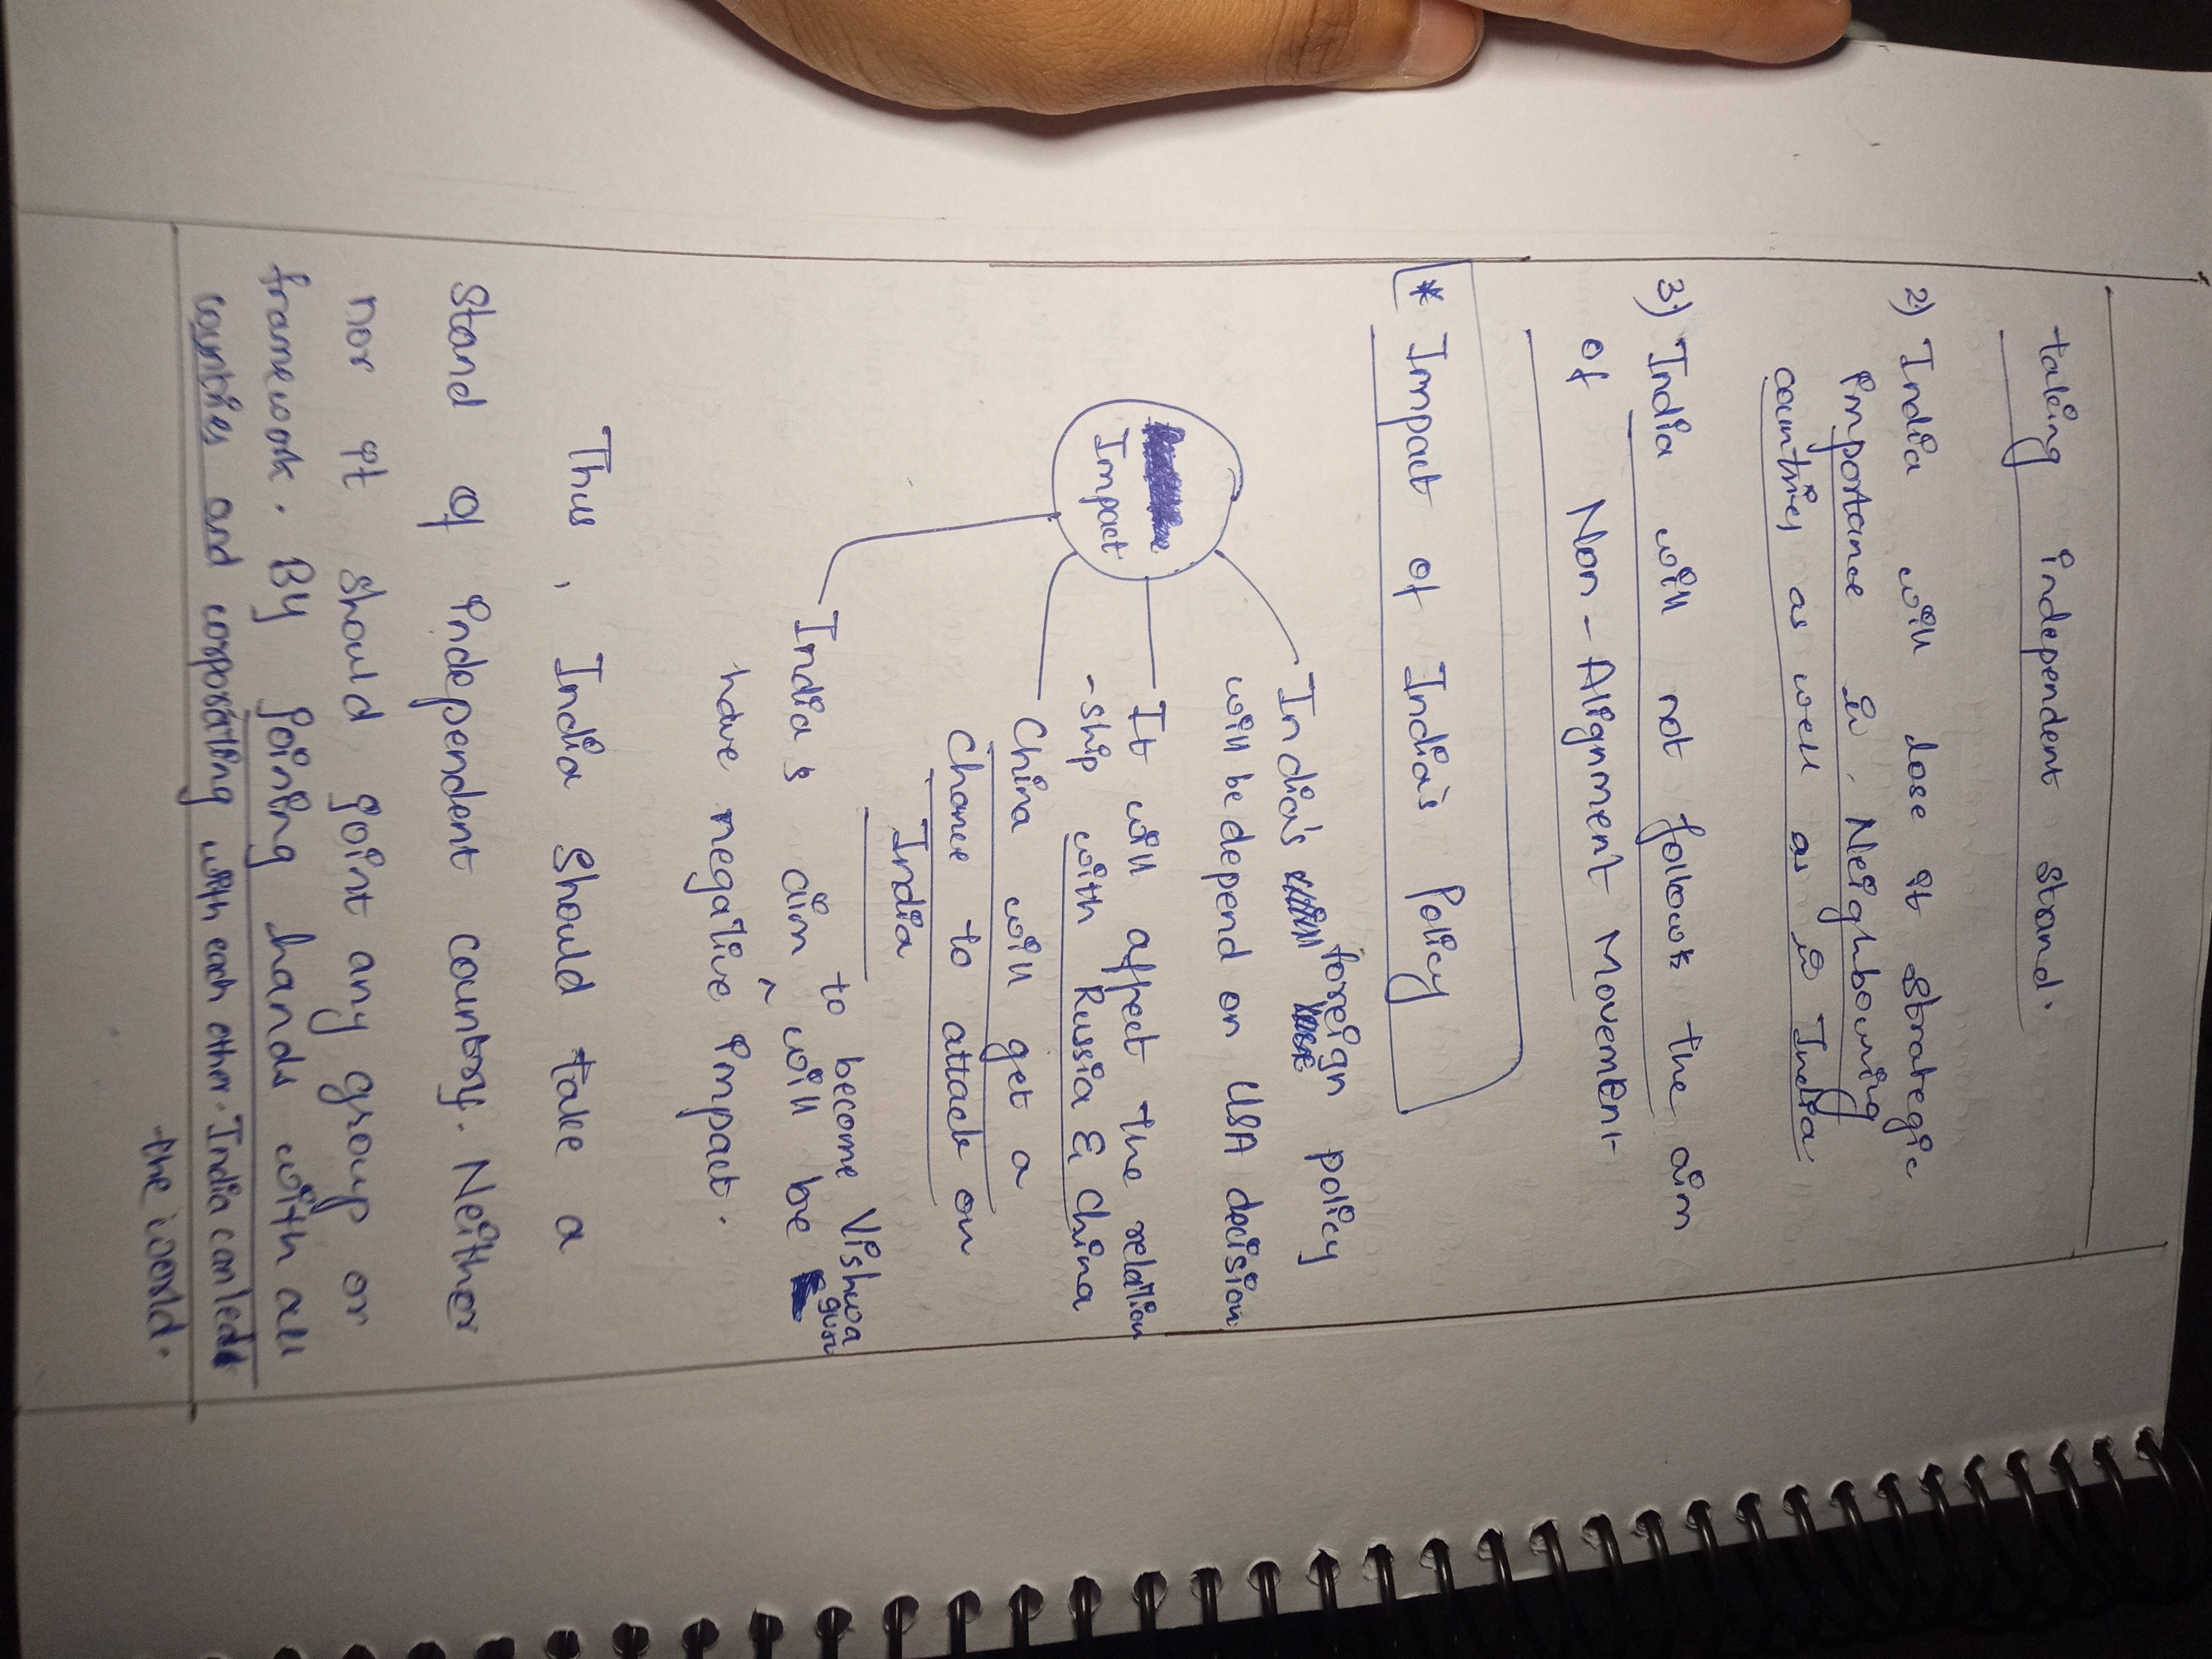 taking independent stand.
2) India will lose it strategic
importance in Neighbouring
countries as well as in India
3) India will not follows the aim
of Non-Alignment Movement
* Impact of India's Policy
Impact
India's foreign policy
will be depend on USA decision
It will affect the relation
-ship with Russia & China
China will get a
chance to attack on
India
to become Vishwa
guru
India's aim ^ will be
have negative impact.
Thus, India should take a
stand of independent country. Neither
nor it should joint any group or
framework. By joining hands with all
countries and corporating with each other. India can led
the world.